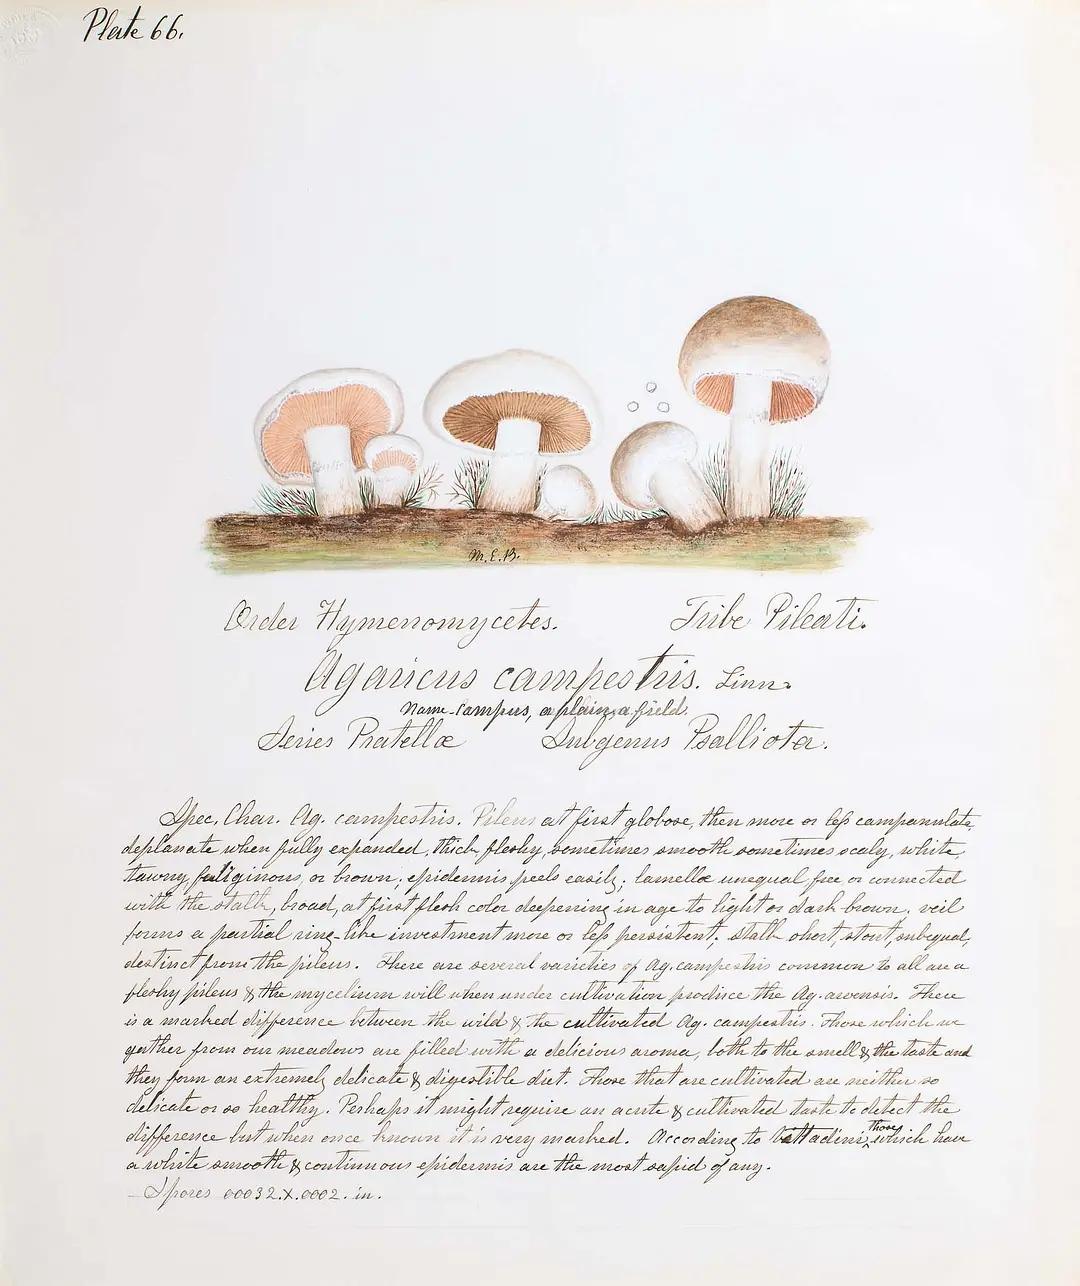 Plate 66.
M.E.B.
Order Hymenomycetes. Tribe Pileati.
Agaricus campestris. Linn.
Name-Campus, a plain, a field.
Series Pratellæ Subgenus Psalliota.
Spec. Char. Ag. campestris. Pileus at first globose, then more or less campanulate,
deplanate when fully expanded, thick fleshy, sometimes smooth sometimes scaly, white,
tawny, fuliginous, or brown; epidermis peels easily; lamellæ unequal free or connected
with the stalk, broad, at first flesh color deepening in age to light or dark brown, veil
forms a partial ring-like investment more or less persistent. stalk short, stout, subequal,
destinct from the pileus. There are several varieties of Ag. campestris common to all are a
fleshy pileus & the mycelium will when under cultivation produce the Ag. arvensis. There
is a marked difference between the wild & the cultivated Ag. campestris. Those which we
gather from our meadows are filled with a delicious aroma, both to the smell & the taste and
they form an extremely delicate & digestible diet. Those that are cultivated are neither so
delicate or so healthy. Perhaps it might require an acute & cultivated taste to detect the
difference but when once known it is very marked. According to Vittadini, those which have
a white smooth & continuous epidermis are the most sapid of any.
Spores 00032.X.0002. in.